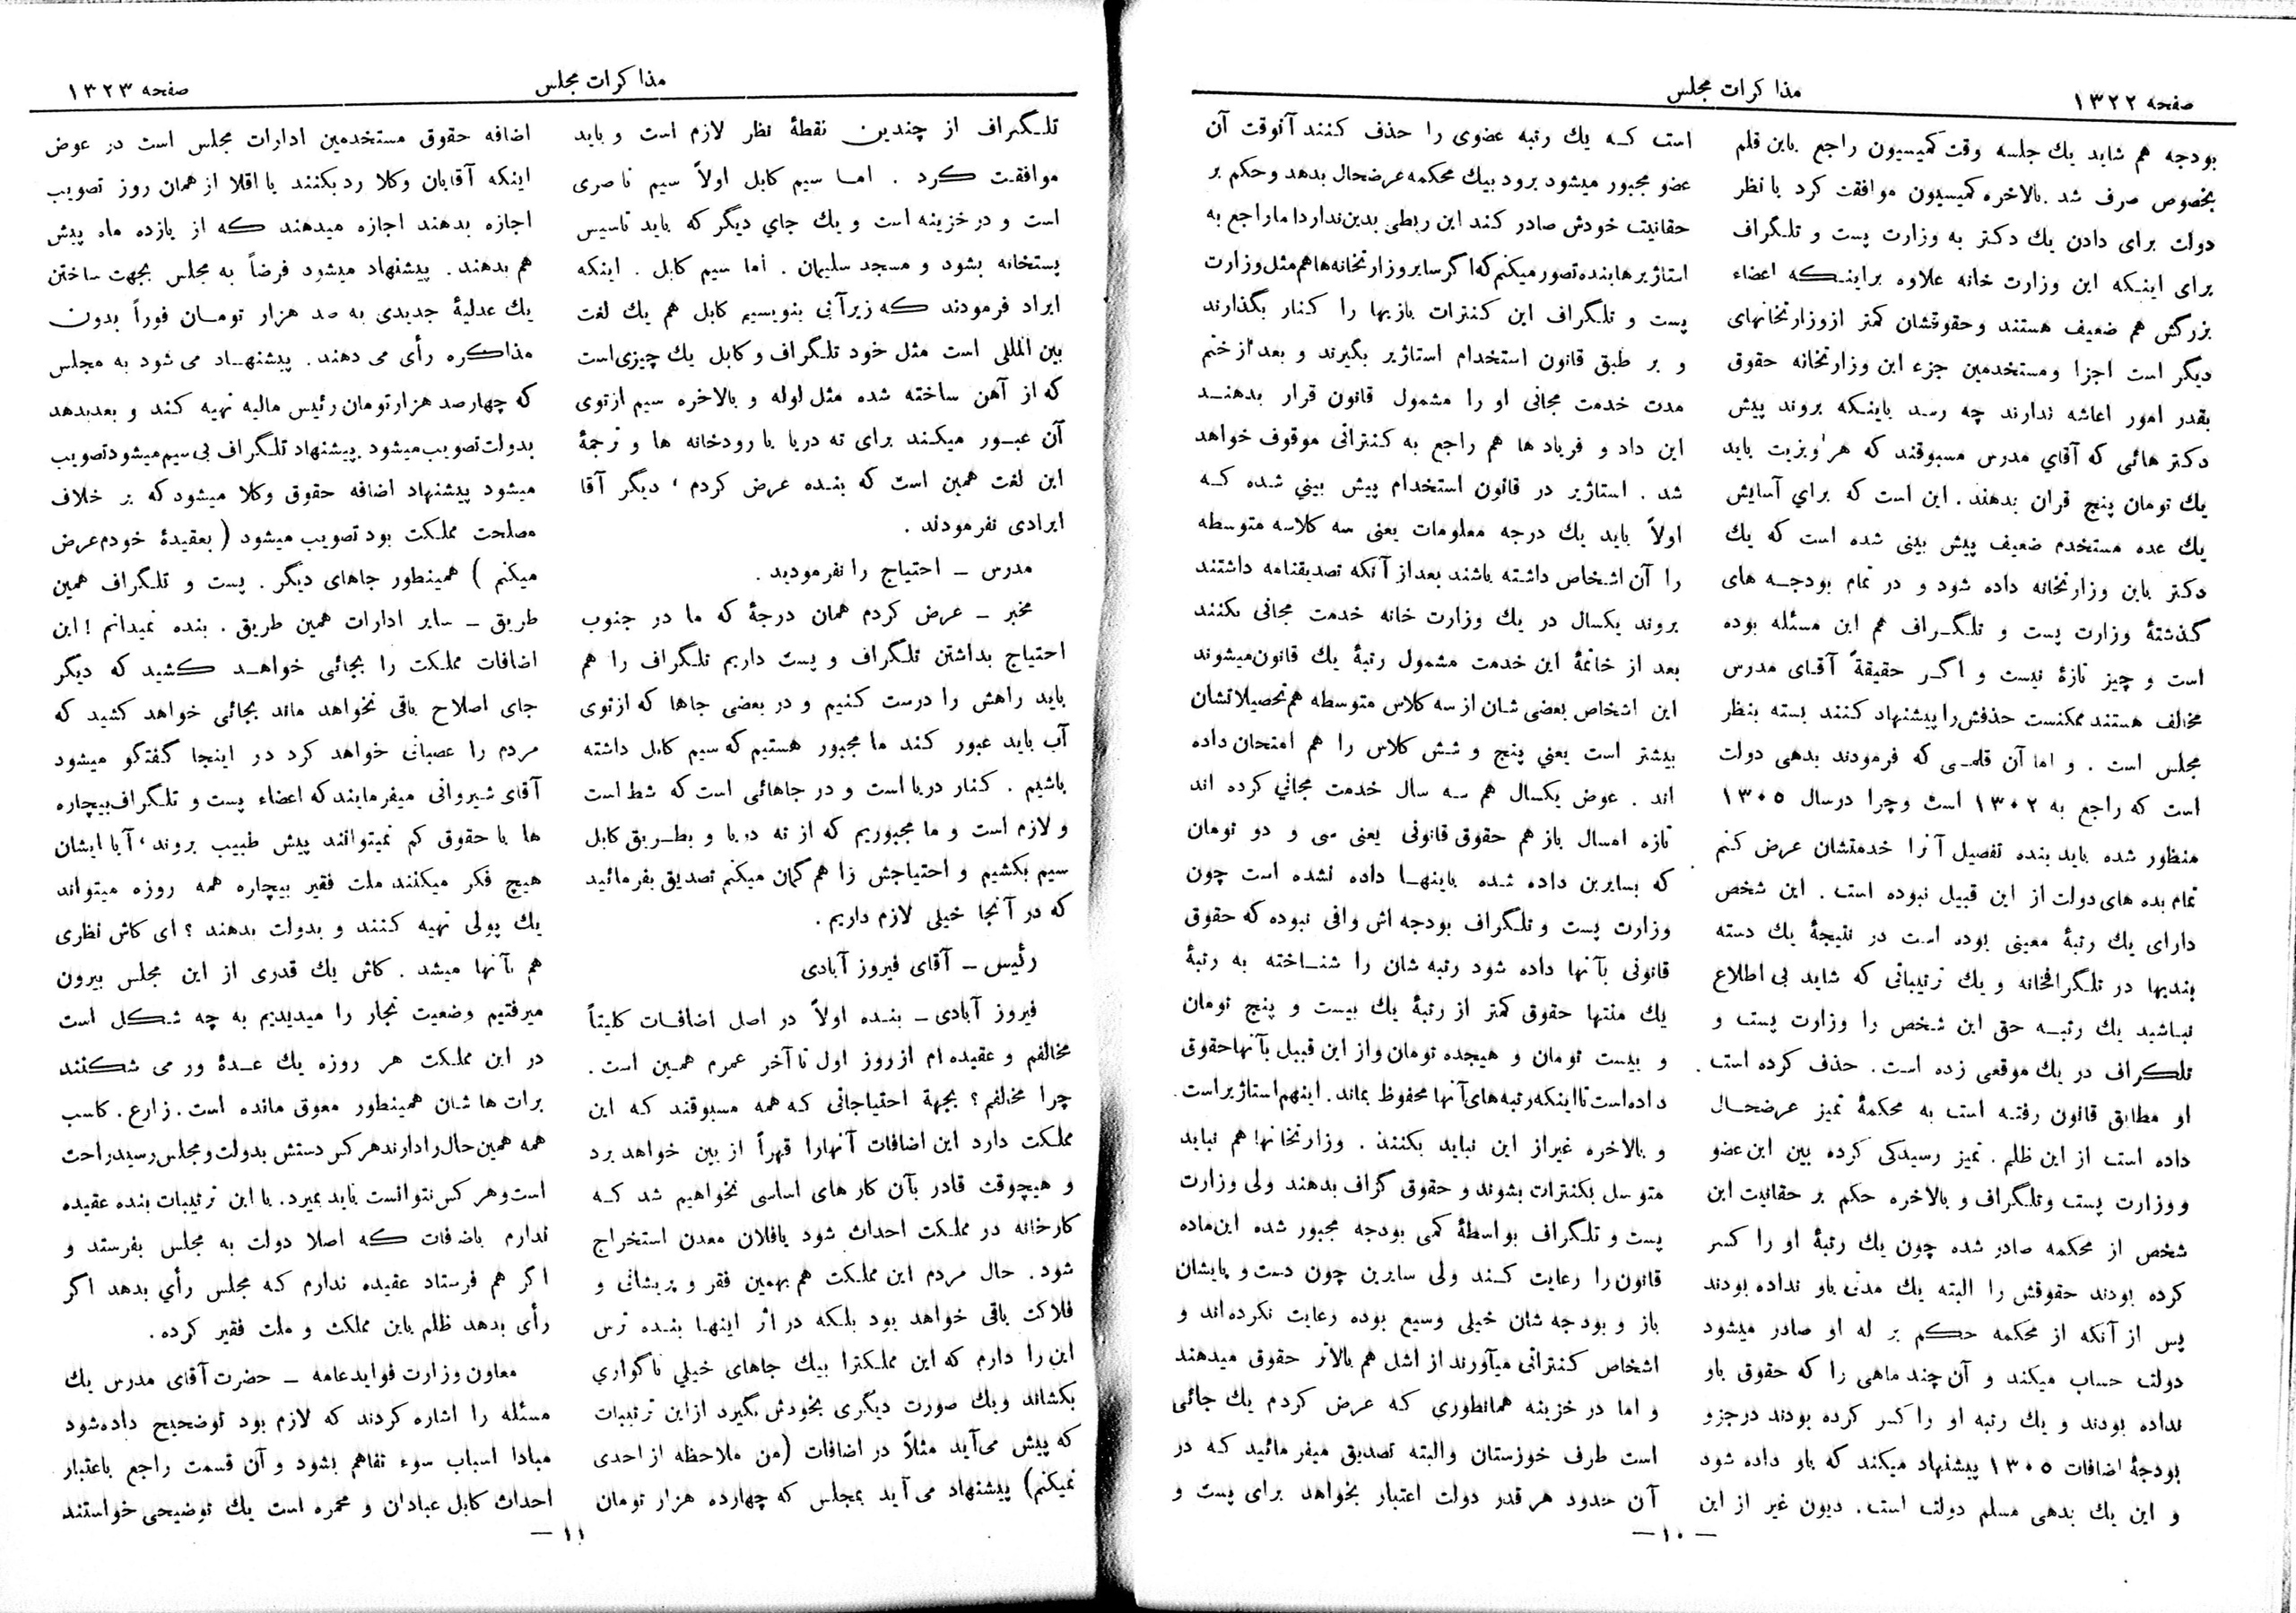 صفحه ۱۳۲۲
مذاکرات مجلس
بودجه هم شاید یك جلسه وقت کمیسیون راجع باین قلم
بخصوص صرف شد . بالاخره کمیسیون موافقت کرد با نظر
دولت برای دادن یك دکتر به وزارت پست و تلگراف
برای اینکه این وزارت خانه علاوه براینکه اعضاء
بزرگش هم ضعیف هستند وحقوقشان کمتر از وزارتخانهای
دیگر است اجزا ومستخدمین جزء این وزارتخانه حقوق
بقدر امور اعاشه ندارند چه رسد باینکه بروند پیش
دکتر هائی که آقاي مدرس مسبوقند که هر ویزیت باید
یك تومان پنج قران بدهند . این است که براي آسایش
یك عده مستخدم ضعیف پیش بینی شده است که یك
دکتر باین وزارتخانه داده شود و در تمام بودجه های
گذشتهٔ وزارت پست و تلگراف هم این مسئله بوده
است و چیز تازهٔ نیست و اگر حقیقةً آقای مدرس
مخالف هستند ممکنست حذفش را پیشنهاد کنند بسته بنظر
مجلس است . و اما آن قلمی که فرمودند بدهی دولت
است که راجع به ۱۳۰۲ است وچرا درسال ۱۳۰۵
منظور شده باید بنده تفصیل آنرا خدمتشان عرض کنم
تمام بده های دولت از این قبیل نبوده است . این شخص
دارای یك رتبهٔ معینی بوده است در نتیجهٔ یك دسته
بندیها در تلگرافخانه و یك ترتیباتی که شاید بی اطلاع
نباشید یك رتبه حق این شخص را وزارت پست و
تلگراف در یك موقعی زده است . حذف کرده است .
او مطابق قانون رفته است به محکمهٔ تمیز عرضحال
داده است از این ظلم . تمیز رسیدگی کرده بین این عضو
و وزارت پست وتلگراف و بالاخره حکم بر حقانیت این
شخص از محکمه صادر شده چون یك رتبهٔ او را کسر
کرده بودند حقوقش را البته یك مدتی باو نداده بودند
پس از آنکه از محکمه حکم بر له او صادر میشود
دولت حساب میکند و آن چند ماهی را که حقوق باو
نداده بودند و یك رتبه او را کسر کرده بودند درجزو
بودجهٔ اضافات ۱۳۰۵ پیشنهاد میکند که باو داده شود
و این یك بدهی مسلم دولت است . دیون غیر از این
است که یك رتبه عضوی را حذف کنند آنوقت آن
عضو مجبور میشود برود بیك محکمه عرضحال بدهد وحکم بر
حقانیت خودش صادر کند این ربطی بدین ندارد اما راجع به
استاژیرها بنده تصور میکنم که اگر سایر وزارتخانه ها هم مثل وزارت
پست و تلگراف این کنترات بازیها را کنار بگذارند
و بر طبق قانون استخدام استاژیر بگیرند و بعد از ختم
مدت خدمت مجانی او را مشمول قانون قرار بدهند
این داد و فریاد ها هم راجع به کنتراتی موقوف خواهد
شد . استاژیر در قانون استخدام پیش بیني شده که
اولاً باید یك درجه معلومات یعنی سه کلاسه متوسطه
را آن اشخاص داشته باشند بعد از آنکه تصدیقنامه داشتند
بروند یکسال در یك وزارت خانه خدمت مجانی بکنند
بعد از خاتمهٔ این خدمت مشمول رتبهٔ یك قانون میشوند
این اشخاص بعضی شان از سه کلاس متوسطه هم تحصیلاتشان
بیشتر است یعني پنج و شش کلاس را هم امتحان داده
اند . عوض یکسال هم سه سال خدمت مجاني کرده اند
تازه امسال باز هم حقوق قانونی یعنی سی و دو تومان
که بسایرین داده شده باینها داده نشده است چون
وزارت پست وتلگراف بودجه اش وافی نبوده که حقوق
قانونی بآنها داده شود رتبه شان را شناخته به رتبهٔ
یك منتها حقوق کمتر از رتبهٔ یك بیست و پنج تومان
و بیست تومان و هیجده تومان واز این قبیل بآنها حقوق
داده است تا اینکه رتبه های آنها محفوظ بماند . اینهم استاژیر است .
و بالاخره غیراز این نباید بکنند . وزارتخانها هم نباید
متوسل بکنترات بشوند و حقوق گزاف بدهند ولی وزارت
پست و تلگراف بواسطهٔ کمی بودجه مجبور شده این ماده
قانون را رعایت کند ولی سایرین چون دست و پایشان
باز و بودجه شان خیلی وسیع بوده رعایت نکرده اند و
اشخاص کنتراتی میآورند از اشل هم بالاتر حقوق میدهند
و اما در خزینه همانطوري که عرض کردم یك جائی
است طرف خوزستان والبته تصدیق میفرمائید که در
آن حدود هر قدر دولت اعتبار بخواهد برای پست و
— ۱۰ —
مذاکرات مجلس
صفحه ۱۳۲۳
تلگراف از چندین نقطهٔ نظر لازم است و باید
موافقت کرد . اما سیم کابل اولاً سیم ناصری
است و در خزینه است و یك جاي دیگر که باید تاسیس
پستخانه بشود و مسجد سلیمان . اما سیم کابل . اینکه
ایراد فرمودند که زیرآنی بنویسیم کابل هم یك لغت
بین المللی است مثل خود تلگراف و کابل یك چیزی است
که از آهن ساخته شده مثل لوله و بالاخره سیم ازتوی
آن عبور میکند برای ته دریا یا رودخانه ها و ترجمهٔ
این لغت همین است که بنده عرض کردم ، دیگر آقا
ایرادی نفرمودند .
مدرس - احتیاج را نفرمودید .
مخبر - عرض کردم همان درجهٔ که ما در جنوب
احتیاج بداشتن تلگراف و پست داریم تلگراف را هم
باید راهش را درست کنیم و در بعضی جاها که ازتوی
آب باید عبور کند ما مجبور هستیم که سیم کابل داشته
باشیم . کنار دریا است و در جاهائی است که شط است
و لازم است و ما مجبوریم که از ته دریا و بطریق کابل
سیم بکشیم و احتیاجش را هم گمان میکنم تصدیق بفرمائید
که در آنجا خیلی لازم داریم .
رئیس - آقای فیروز آبادی
فیروز آبادی - بنده اولاً در اصل اضافات کلیتاً
مخالفم و عقیده ام از روز اول تا آخر عمرم همین است .
چرا مخالفم ؟ بجهة احتیاجاتی که همه مسبوقند که این
مملکت دارد این اضافات آنهارا قهراً از بین خواهد برد
و هیچوقت قادر بآن کار های اساسی نخواهیم شد که
کارخانه در مملکت احداث شود یافلان معدن استخراج
شود . حال مردم این مملکت هم بهمین فقر و پریشانی و
فلاکت باقی خواهد بود بلکه در اثر اینها بنده ترس
این را دارم که این مملکترا بیك جاهای خیلي ناگواري
بکشاند ویك صورت دیگری بخودش بگیرد ازاین ترتیبات
که پیش می آید مثلاً در اضافات (من ملاحظه از احدی
نمیکنم) پیشنهاد می آید بمجلس که چهارده هزار تومان
اضافه حقوق مستخدمین ادارات مجلس است در عوض
اینکه آقایان وکلا رد بکنند یا اقلا از همان روز تصویب
اجازه بدهند اجازه میدهند که از یازده ماه پیش
هم بدهند . پیشنهاد میشود فرضاً به مجلس بجهت ساختن
یك عدلیهٔ جدیدی به صد هزار تومان فوراً بدون
مذاکره رأی می دهند . پیشنهاد می شود به مجلس
که چهارصد هزار تومان رئیس مالیه تهیه کند و بعد بدهد
بدولت تصویب میشود پیشنهاد تلگراف بی سیم میشود تصویب
میشود پیشنهاد اضافه حقوق وکلا میشود که بر خلاف
مصلحت مملکت بود تصویب میشود ( بعقیدهٔ خودم عرض
میکنم ) همینطور جاهای دیگر . پست و تلگراف همین
طریق - سایر ادارات همین طریق . بنده نمیدانم ! این
اضافات مملکت را بجائی خواهد کشید که دیگر
جای اصلاح باقی نخواهد ماند بجائی خواهد کشید که
مردم را عصبانی خواهد کرد در اینجا گفتگو میشود
آقای شیروانی میفرمایند که اعضاء پست و تلگراف بیچاره
ها با حقوق کم نمیتوانند پیش طبیب بروند ، آیا ایشان
هیچ فکر میکنند ملت فقیر بیچاره همه روزه میتواند
یك پولی تهیه کنند و بدولت بدهند ؟ ای کاش نظری
هم بآنها میشد . کاش یك قدری از این مجلس بیرون
میرفتیم وضعیت تجار را میدیدیم به چه شکل است
در این مملکت هر روزه یك عدهٔ ور می شکنند
برات ها شان همینطور معوق مانده است . زارع . کاسب
همه همین حال را دارند هرکس دستش بدولت و مجلس رسید راحت
است وهر کس نتوانست باید بمیرد . با این ترتیبات بنده عقیده
ندارم باضافات که اصلا دولت به مجلس بفرستد و
اگر هم فرستاد عقیده ندارم که مجلس رأي بدهد اگر
رأی بدهد ظلم باین مملکت و ملت فقیر کرده .
معاون وزارت فواید عامه - حضرت آقای مدرس یك
مسئله را اشاره کردند که لازم بود توضحیح داده شود
مبادا اسباب سوء تفاهم بشود و آن قسمت راجع باعتبار
احداث کابل عبادان و محمره است یك توضیحی خواستند
— ۱۱ —